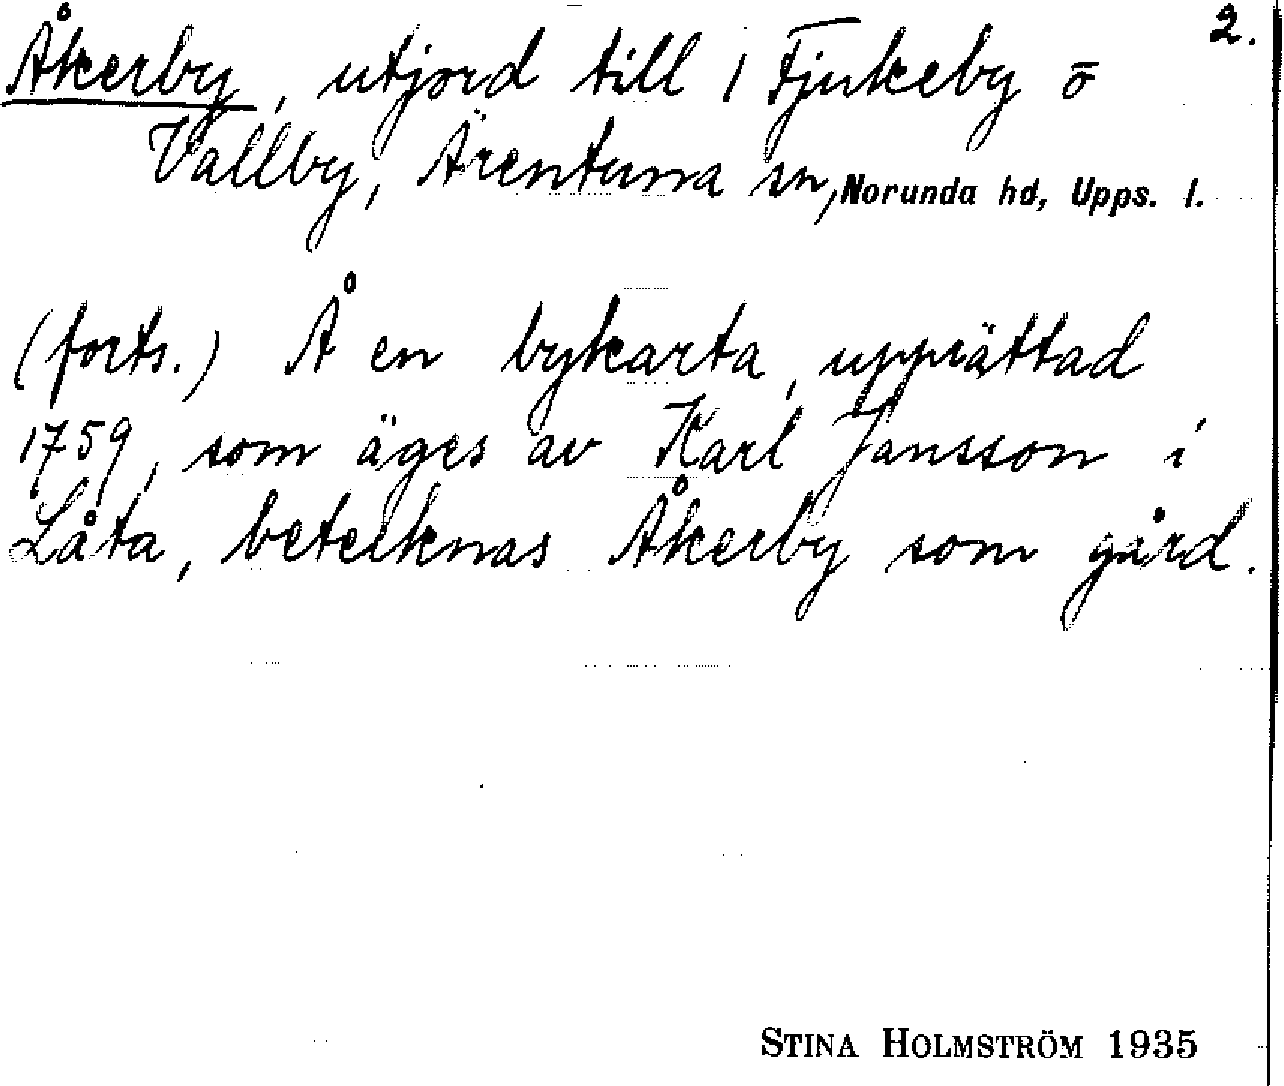 2.
Åkerby, utjord till 1 Fjukeby o
Vallby, Ärentuna sn, Norunda hd, Upps. l.
(forts.) Å en bykarta, upprättad
1759, som äges av Karl Jansson i
Låta, betecknas Åkerby som gård.
STINA HOLMSTRÖM 1935